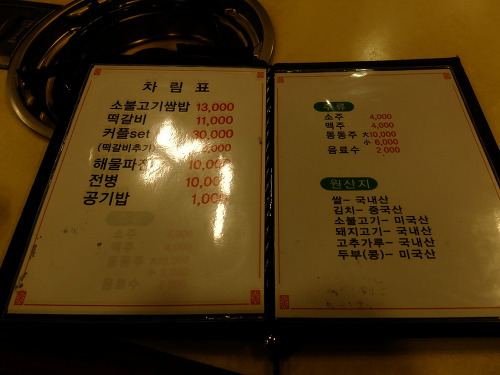 차 림 표
소불고기쌈밥 13,000
떡갈비 11,000
커플set 30,000
(떡갈비추가
해물파전 10,000
전병 10,000
공기밥 1,000
주류
소주 4,000
맥주 4,000
동동주 大10,000
小 6,000
음료수 2,000
원산지
쌀- 국내산
김치- 중국산
소불고기- 미국산
돼지고기- 국내산
고추가루- 국내산
두부(콩)- 미국산